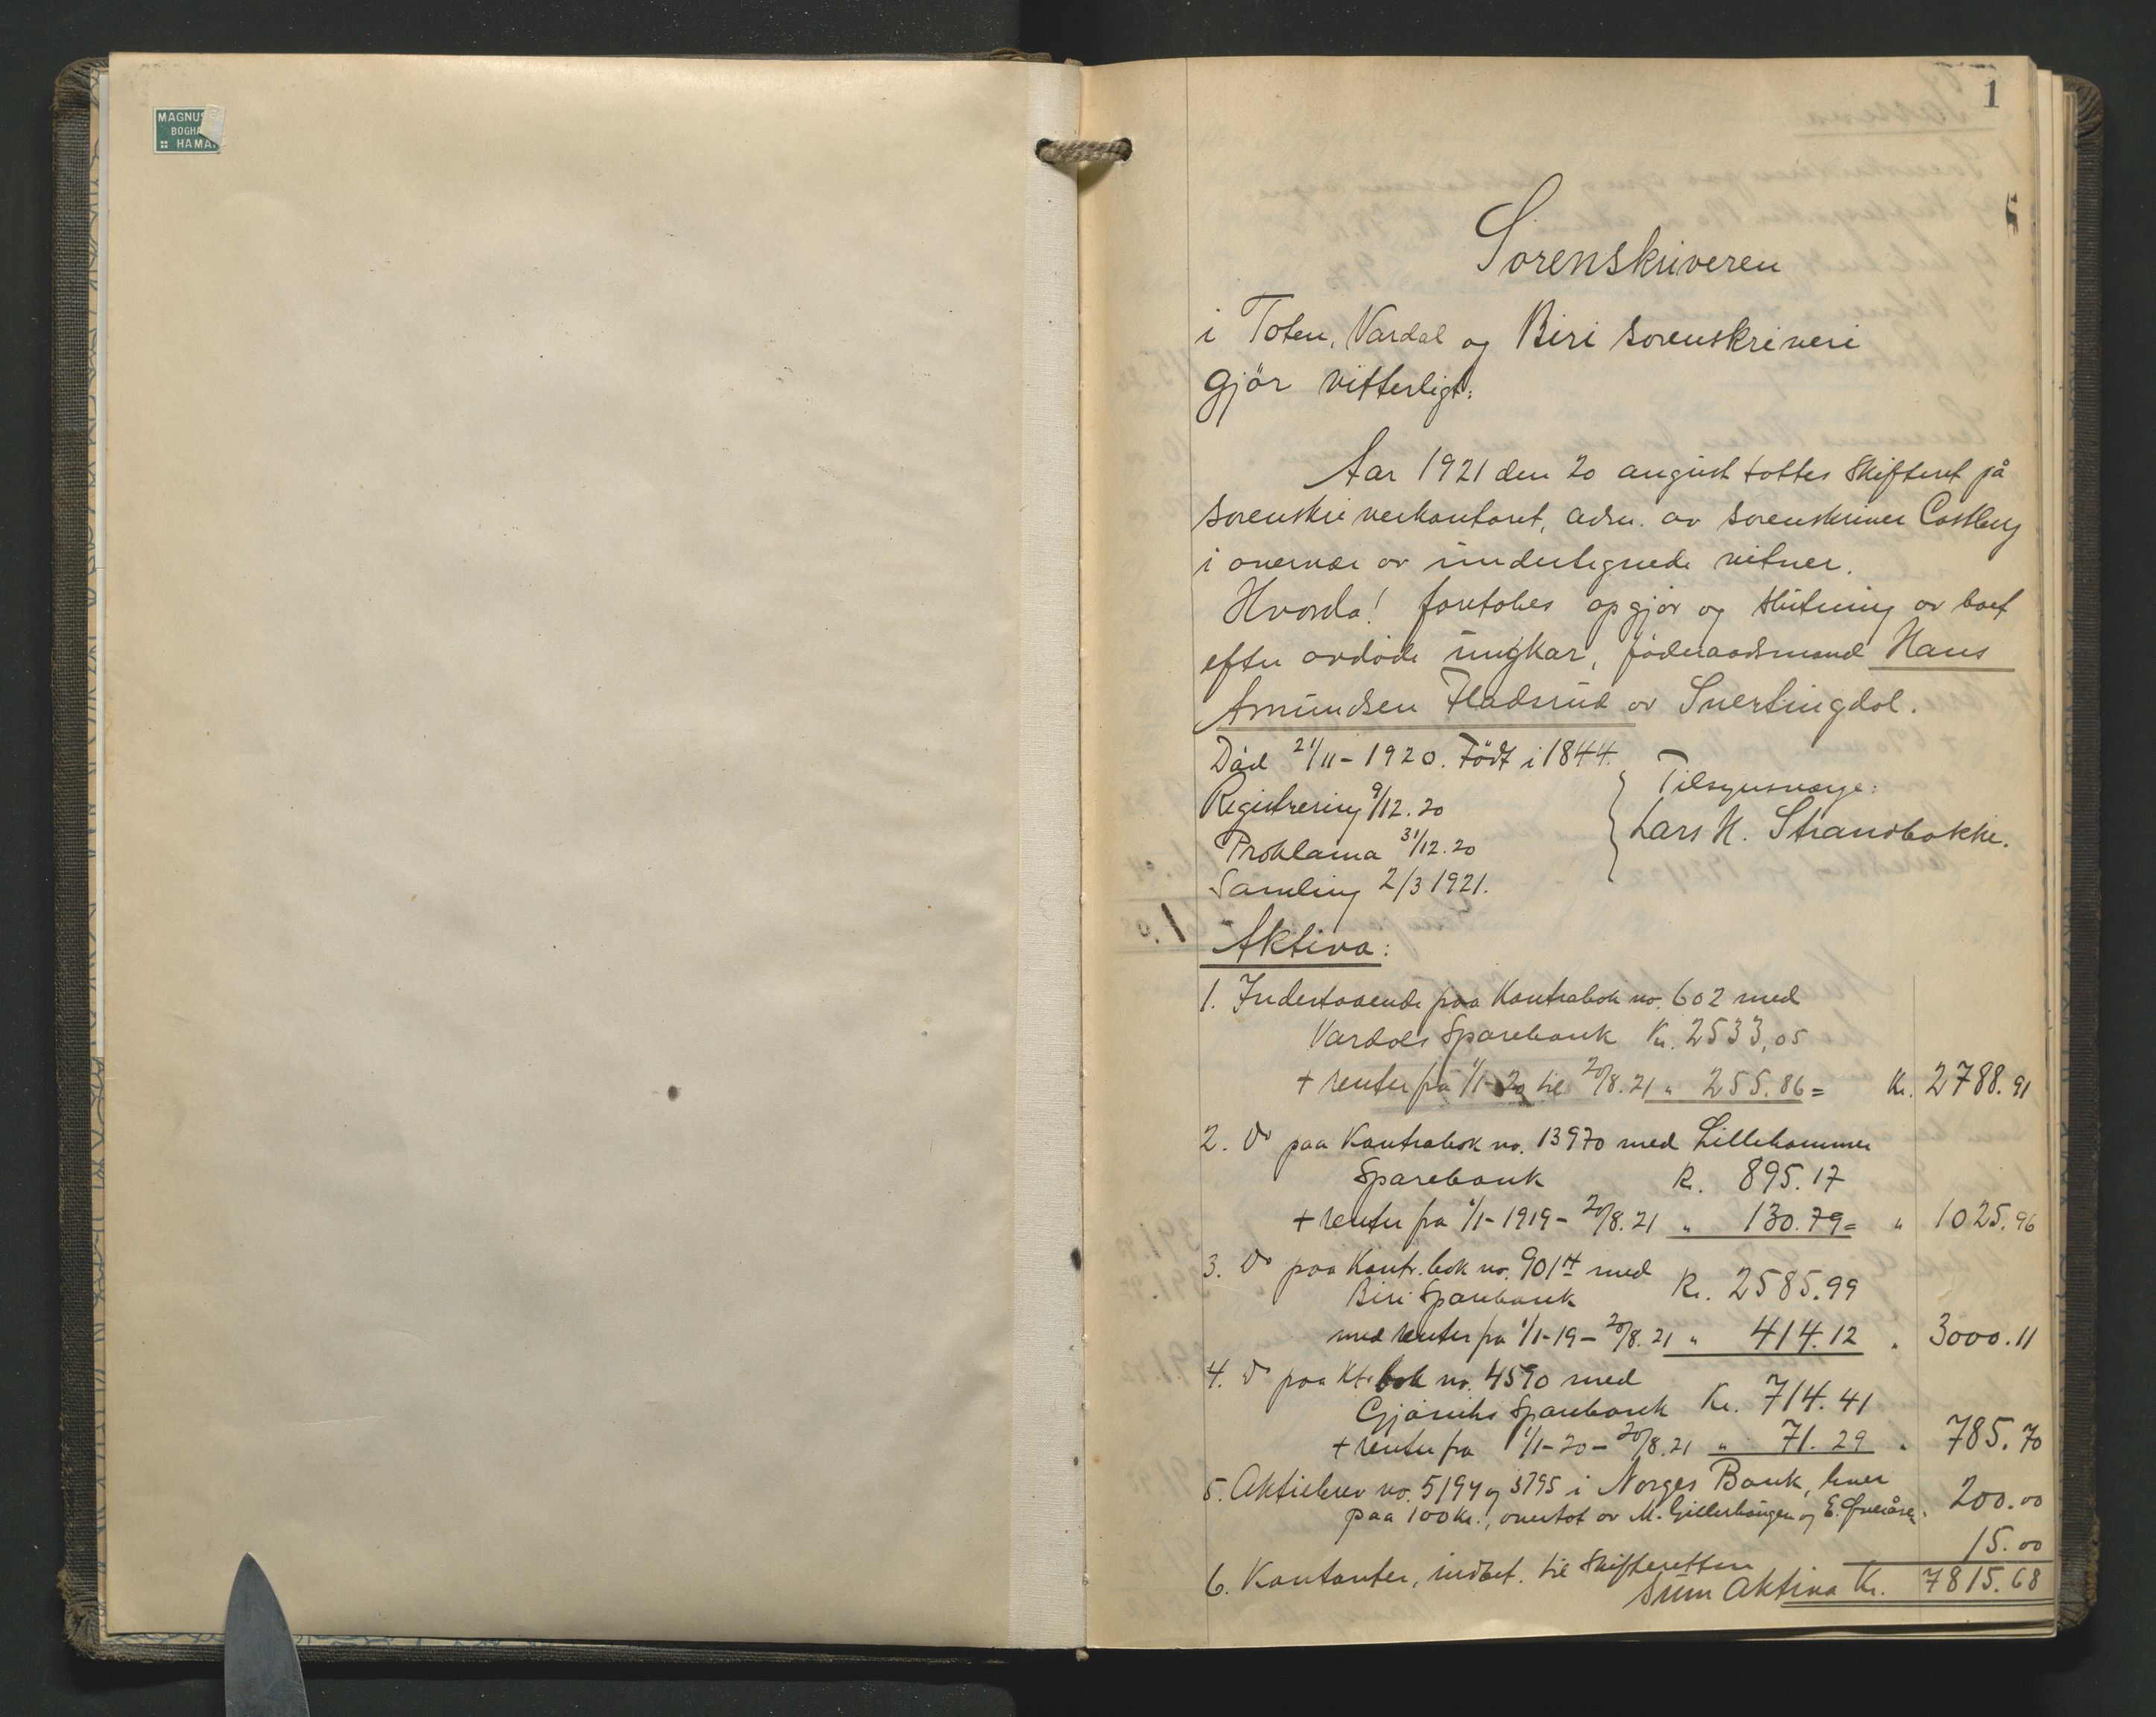 MAGNUS
BOGHA
HAMA
1
Sorenskriveren
i Toten, Vardal og Biri sorenskriveri
gjør vitterligt:
Aar 1921 den 20 august sattes Skifteret på
sorenskriverkontoret, adm. av sorenskriver Castberg
i overvær av undertegnede vitner.
Hvorda! foretokes opgjør og slutning av boet
efter avdøde ungkar, føderaadsmand Hans
Amundsen Fladsrud av Snertingdal.
Død 21/11-1920. Født i 1844.
Registrering 9/12.20
Proklama 31/12.20
Samling 2/3 1921.
Tilsynsverge:
Lars H. Strandbakke.
1
Aktiva:
1. Indestaaende paa Kontrabok no. 602 med
Vardals Sparebank Kr. 2533,05
+ renter fra 1/1-20 til 20/8.21 " 255.86 = Kr. 2788.91
2. Do paa Kontrabok no. 13970 med Lillehammer
Sparebank Kr. 895.17
+ renter fra 1/1-1919 - 20/8.21 " 130.79 = " 1025.96
3. Do paa Kontr.bok no. 9014 med
Biri Sparebank Kr. 2585.99
med renter fra 1/1-19 - 20/8.21 " 414.12 " 3000.11
4. Do paa Ktr.bok no. 4590 med
Gjøviks Sparebank Kr. 714.41
+ renter fra 1/1-20 - 20/8.21 " 71.29 " 785.70
5. Aktiebrev no. 5194 og 5795 i Norges Bank, hver
paa 100 Kr., overtat av M. Gillerhaugen og E. " 200.00
6. Kontanter, indbet. til Skifteretten 15.00
Sum Aktiva Kr. 7815.68